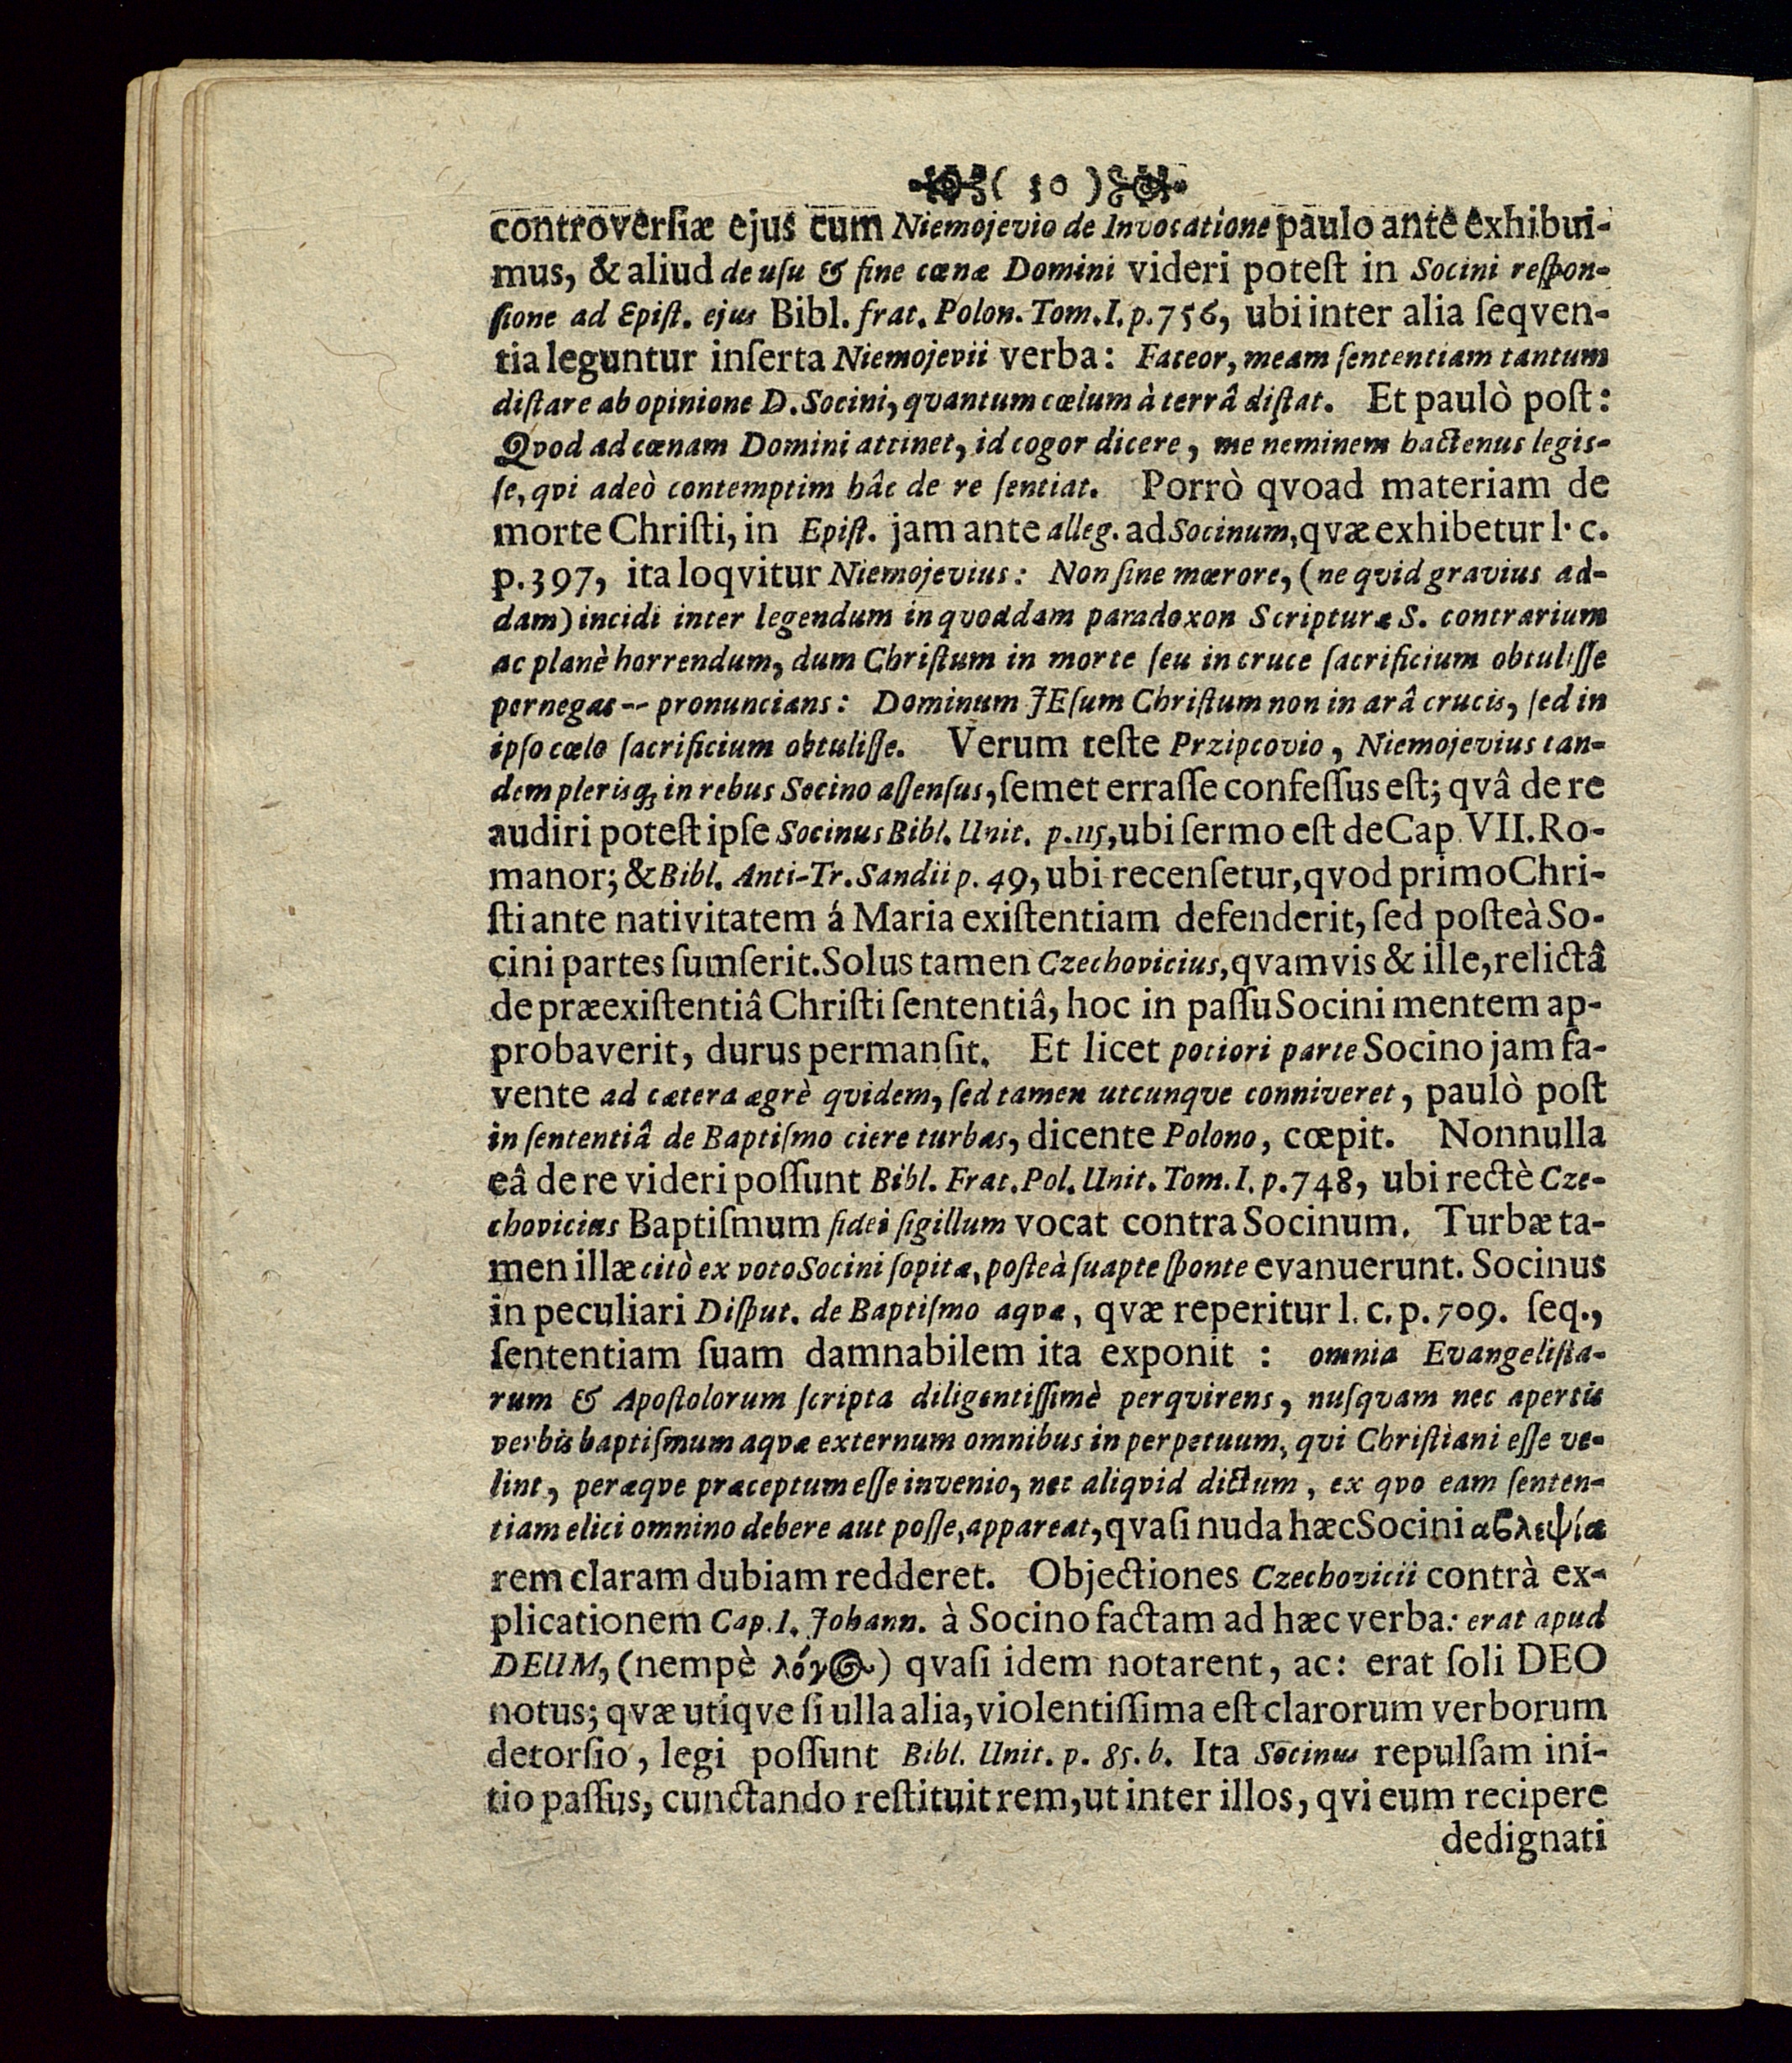 ( 10 )
controverſiæ ejus cum Niemojevio de Invocatione paulo antè exhibui-
mus, & aliud de uſu & fine cœnæ Domini videri poteſt in Socini reſpon-
ſione ad Epiſt. ejus Bibl. frat. Polon. Tom. I. p. 756, ubi inter alia ſeqven-
tia leguntur inſerta Niemojevii verba: Fateor, meam ſententiam tantum
diſtare ab opinione D. Socini, qvantum cœlum à terrâ diſtat. Et paulò poſt:
Qvod ad cœnam Domini attinet, id cogor dicere, me neminem hactenus legis-
ſe, qvi adeò contemptim hâc de re ſentiat. Porrò qvoad materiam de
morte Chriſti, in Epiſt. jam ante alleg. ad Socinum, qvæ exhibetur l. c.
p. 397, ita loqvitur Niemojevius: Non ſine mœrore, (ne qvid gravius ad-
dam) incidi inter legendum in qvoddam paradoxon Scripturæ S. contrarium
ac planè horrendum, dum Chriſtum in morte ſeu in cruce ſacrificium obtuliſſe
pernegas -- pronuncians: Dominum JEſum Chriſtum non in arâ crucis, ſed in
ipſo cœlo ſacrificium obtuliſſe. Verum teſte Przipcovio, Niemojevius tan-
dem plerisq; in rebus Socino aſſenſus, ſemet erraſſe confeſſus eſt; qvâ de re
audiri poteſt ipſe Socinus Bibl. Unit. p. 115, ubi ſermo eſt de Cap. VII. Ro-
manor; & Bibl. Anti-Tr. Sandii p. 49, ubi recenſetur, qvod primo Chri-
ſti ante nativitatem á Maria exiſtentiam defenderit, ſed poſteà So-
cini partes ſumſerit. Solus tamen Czechovicius, qvamvis & ille, relictâ
de præexiſtentiâ Chriſti ſententiâ, hoc in paſſu Socini mentem ap-
probaverit, durus permanſit. Et licet potiori parte Socino jam fa-
vente ad cætera ægrè qvidem, ſed tamen utcunqve conniveret, paulò poſt
in ſententiâ de Baptiſmo ciere turbas, dicente Polono, cœpit. Nonnulla
eâ de re videri poſſunt Bibl. Frat. Pol. Unit. Tom. I. p. 748, ubi rectè Cze-
chovicius Baptiſmum fidei ſigillum vocat contra Socinum. Turbæ ta-
men illæ citò ex voto Socini ſopitæ, poſteà ſuapte ſponte evanuerunt. Socinus
in peculiari Diſput. de Baptiſmo aqvæ, qvæ reperitur l. c. p. 709. ſeq.,
ſententiam ſuam damnabilem ita exponit : omnia Evangeliſta-
rum & Apoſtolorum ſcripta diligentiſſimè perqvirens, nuſqvam nec apertis
verbis baptiſmum aqvæ externum omnibus in perpetuum, qvi Chriſtiani eſſe ve-
lint, peræqve præceptum eſſe invenio, nec aliqvid dictum, ex qvo eam ſenten-
tiam elici omnino debere aut poſſe, appareat, qvaſi nuda hæc Socini αϐλεψία
rem claram dubiam redderet. Objectiones Czechovicii contrà ex-
plicationem Cap. I. Johann. à Socino factam ad hæc verba: erat apud
DEUM, (nempè λόγος) qvaſi idem notarent, ac: erat ſoli DEO
notus; qvæ utiqve ſi ulla alia, violentiſſima eſt clarorum verborum
detorſio, legi poſſunt Bibl. Unit. p. 85. b. Ita Socinus repulſam ini-
tio paſſus, cunctando reſtituit rem, ut inter illos, qvi eum recipere
dedignati